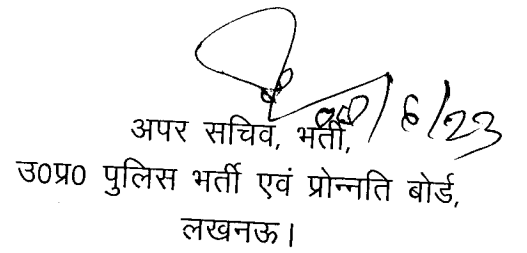 /6/23
अपर सचिव, भर्ती,
उ0प्र0 पुलिस भर्ती एवं प्रोन्नति बोर्ड,
लखनऊ।